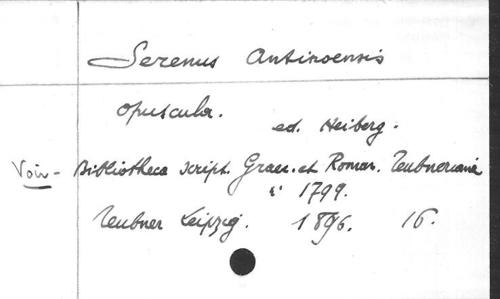 Serenus Antinoensis
opuscula.
ed. Heiberg.
Voir - Bibliotheca script. Graec. et Roman. Teubneriana
1799.
Teubner Leipzig. 1896. 16.